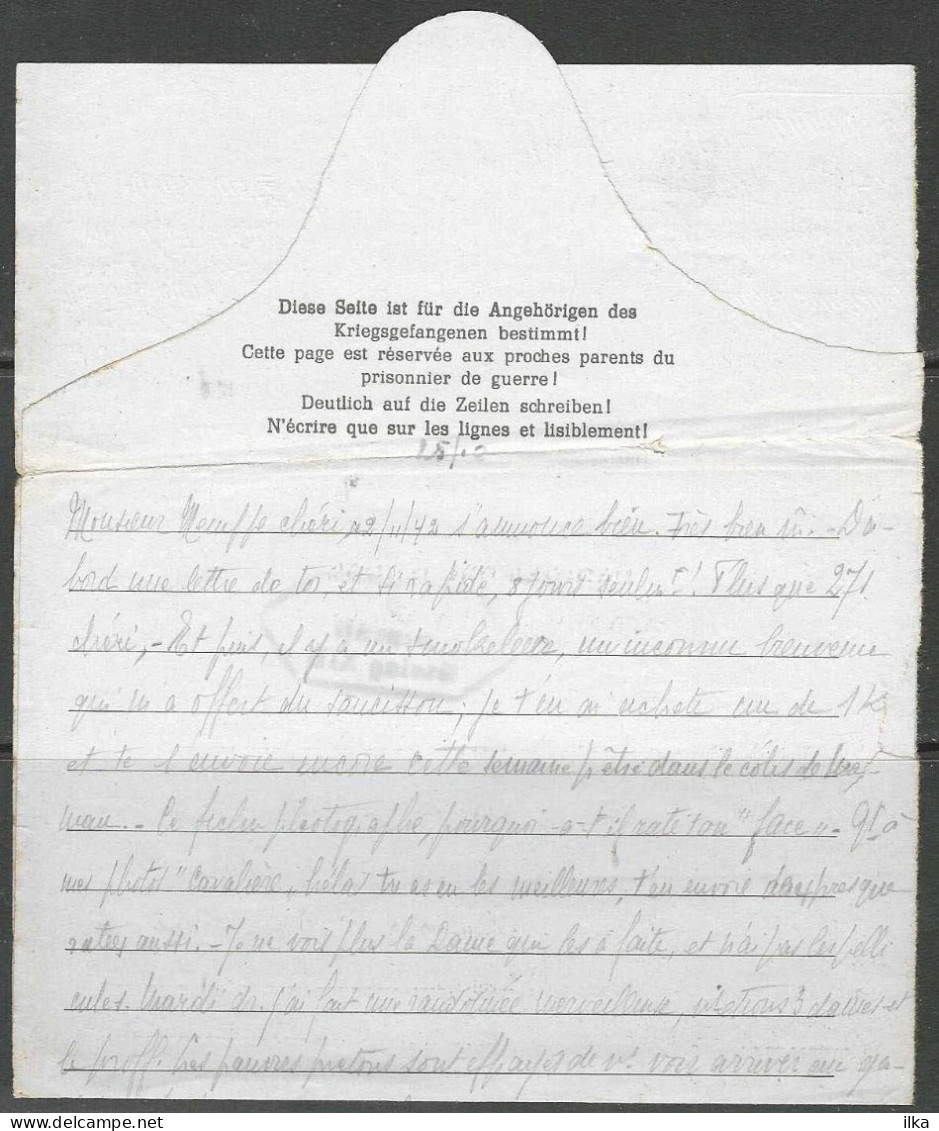 Diese Seite ist für die Angehörigen des
Kriegsgefangenen bestimmt!
Cette page est réservée aux proches parents du
prisonnier de guerre!
Deutlich auf die Zeilen schreiben!
N'écrire que sur les lignes et lisiblement!
Monsieur chéri, 22/11/42 s'annonce bien. Très bien m. - Da-
bord une lettre de toi, et si rapide, 8 jours seulem^t! Plus que 271
chéri, - Et puis, il y a un un inconnu bienvenu
qui m'a offert du saucisson; je t'en ai acheté un de 1k
et te l'envoie encore cette semaine p. être dans le colis de Ma-
man. - Ce fichu photographe, pourquoi a-t-il raté ton "face" - Qt à
mes photos "cavalière", hélas tu as eu les meilleures, t'en envoie d'aut presque
ratées aussi. - Je ne vois plus la Dame qui les a faite, et n'ai pas les pelli
cules. Mardi dr. j'ai fait une randonnée merveilleuse, ns étions 3 dames et
le proff. Les pauvres piétons sont effrayés de ns voir arriver au ga-
ilka